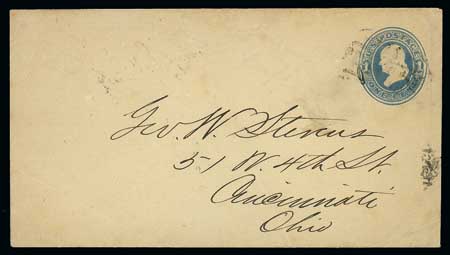 U.S. POSTAGE
ONE CENT
Geo. W. Stevens
51 W. 4th St.
Cincinnati
Ohio